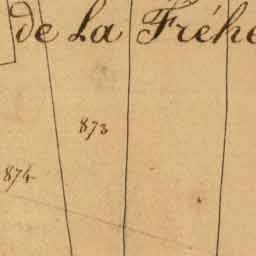 de La Fréhe
873
874